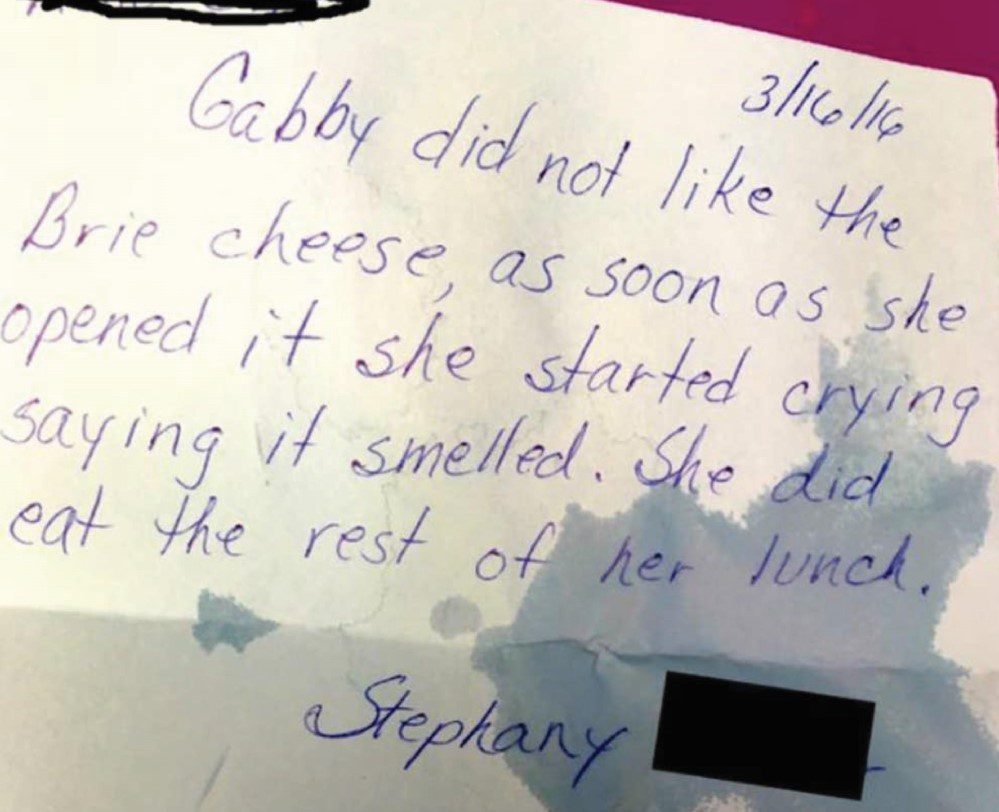 3/16/16
Gabby did not like the
Brie cheese, as soon as she
opened it she started crying
saying it smelled. She did
eat the rest of her lunch.
Stephany